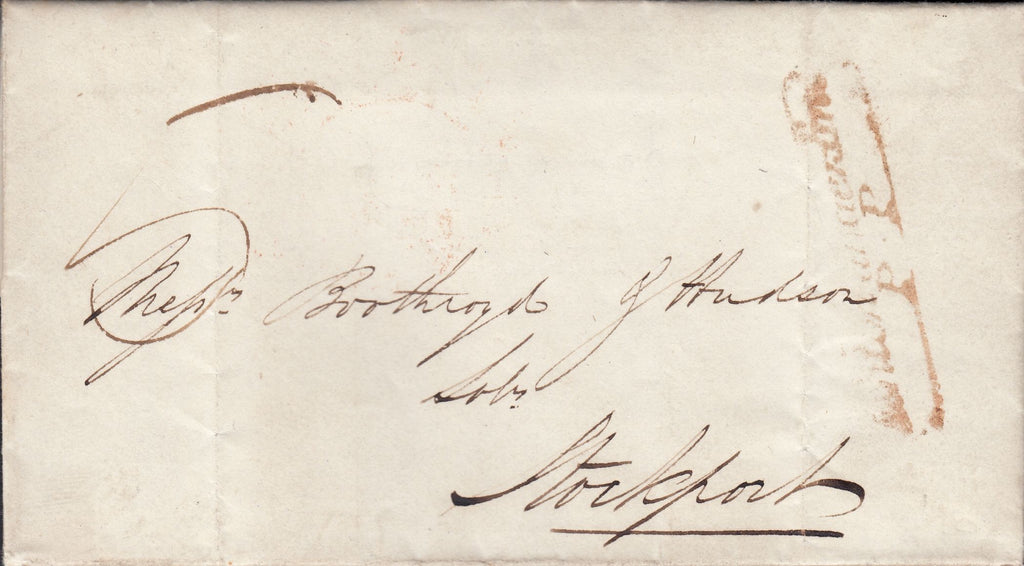 Messrs Boothroyd & Hudson
Solrs
Stockport
P. P.